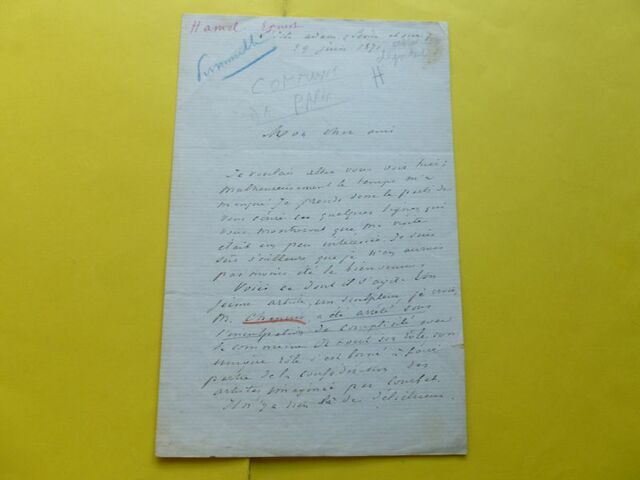 Hamel Ernest
29 juin 1871
H
COMMUNE
DE PARIS
Mon cher ami
Je voulais aller vous voir hier;
malheureusement le temps m'a
manqué. Je prends donc le parti de
vous écrire ces quelques lignes qui
vous montreront que ma visite
était un peu intéressée. Je suis
sûr d'ailleurs que je n'en aurais
pas moins été le bienvenu.
Voici ce dont il s'agit. Un
jeune artiste, un sculpteur, je crois,
M. a été arrêté sous
l'inculpation de complicité avec
la commune. De tout son rôle, son
unique rôle s'est borné à faire
partie de la confédération des
artistes imaginée par Courbet.
Il n'y a rien là de délictueux.